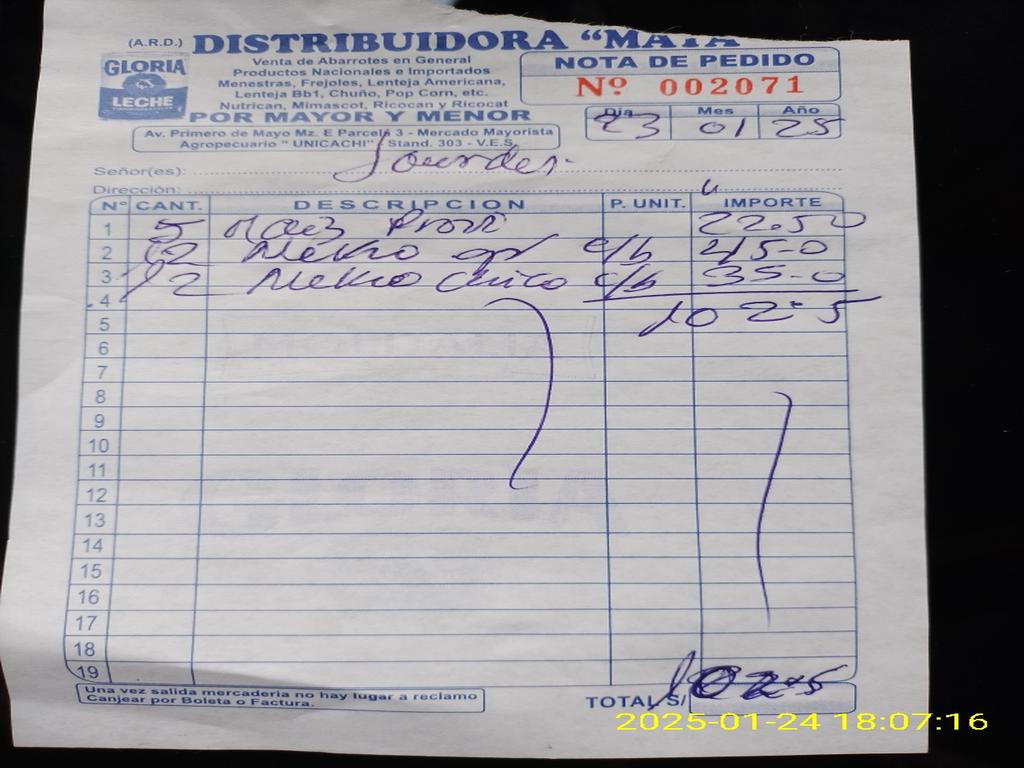 (A.R.D.) DISTRIBUIDORA "MAYA"
GLORIA
LECHE
Venta de Abarrotes en General
Productos Nacionales e Importados
Menestras, Frejoles, Lenteja Americana,
Lenteja Bb1, Chuño, Pop Corn, etc.
Nutrican, Mimascot, Ricocan y Ricocat
POR MAYOR Y MENOR
Av. Primero de Mayo Mz. E Parcela 3 - Mercado Mayorista
Agropecuario " UNICACHI" Stand. 303 - V.E.S.
NOTA DE PEDIDO
Nº 002071
Día Mes Año
23 01 25
Señor(es): Lourdes
Dirección:
Nº CANT. DESCRIPCION P. UNIT. IMPORTE
1 5 Maiz 22.50
2 12 c/b 45-0
3 12 chico c/b 35-0
4 102-5
5
6
7
8
9
10
11
12
13
14
15
16
17
18
19
Una vez salida mercaderia no hay lugar a reclamo
Canjear por Boleta o Factura.
TOTAL S/ 102-5
2025-01-24 18:07:16